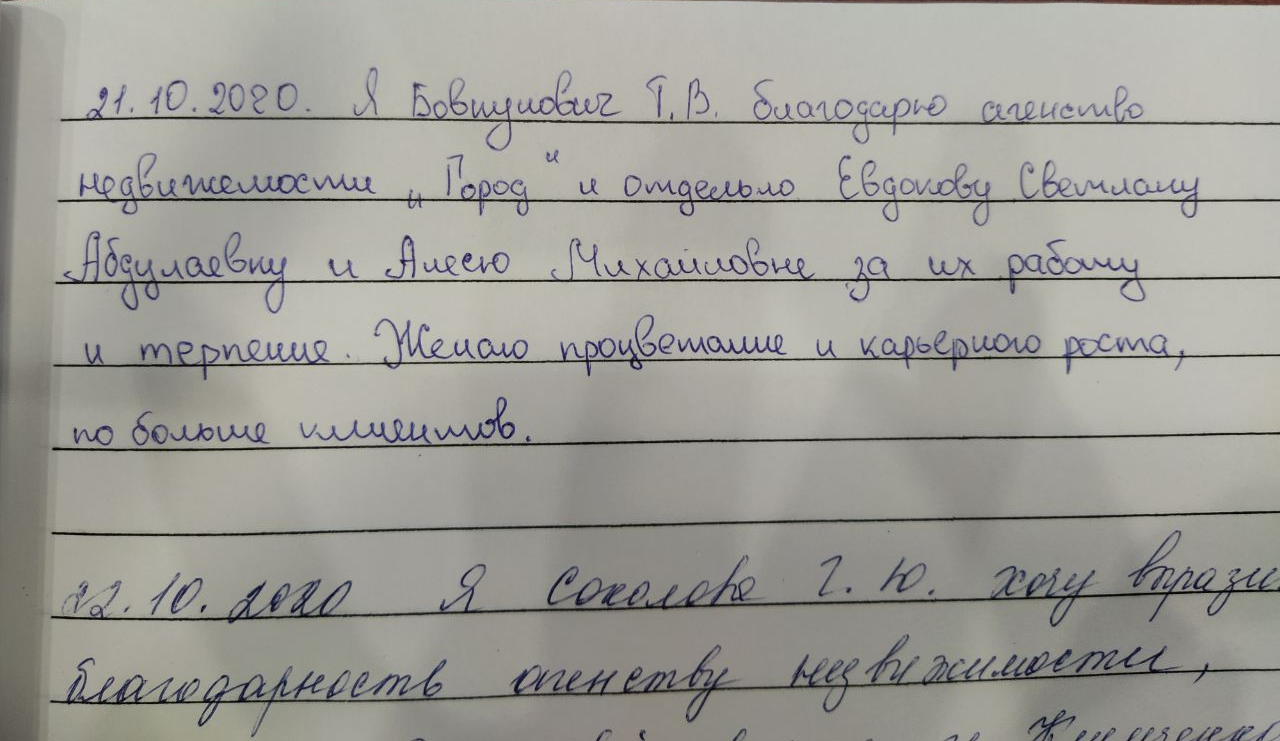 21.10.2020. Я Бовтунович Т.В. благодарю агенство
недвижемости „Город" и отдельно Евдокову Светлану
Абдулаевну и Алесю Михайловне за их работу
и терпение. Желаю процветание и карьерного роста,
по больше клиентов.
22.10.2020 Я Соколова Г. Ю. хочу вырази
благодарность агенству недвижимости,